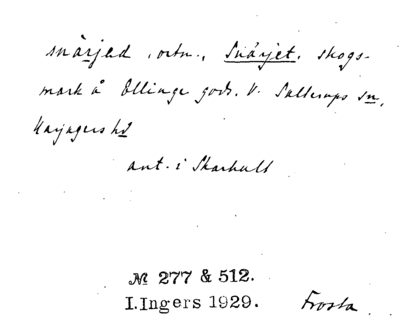 snärjed, ortn., Snärjet, skogs-
mark å Ellinge gods. V. Sallerups sn,
Harjagers hd
ant. i Skarhult
№ 277 & 512.
I. Ingers 1929. Frosta